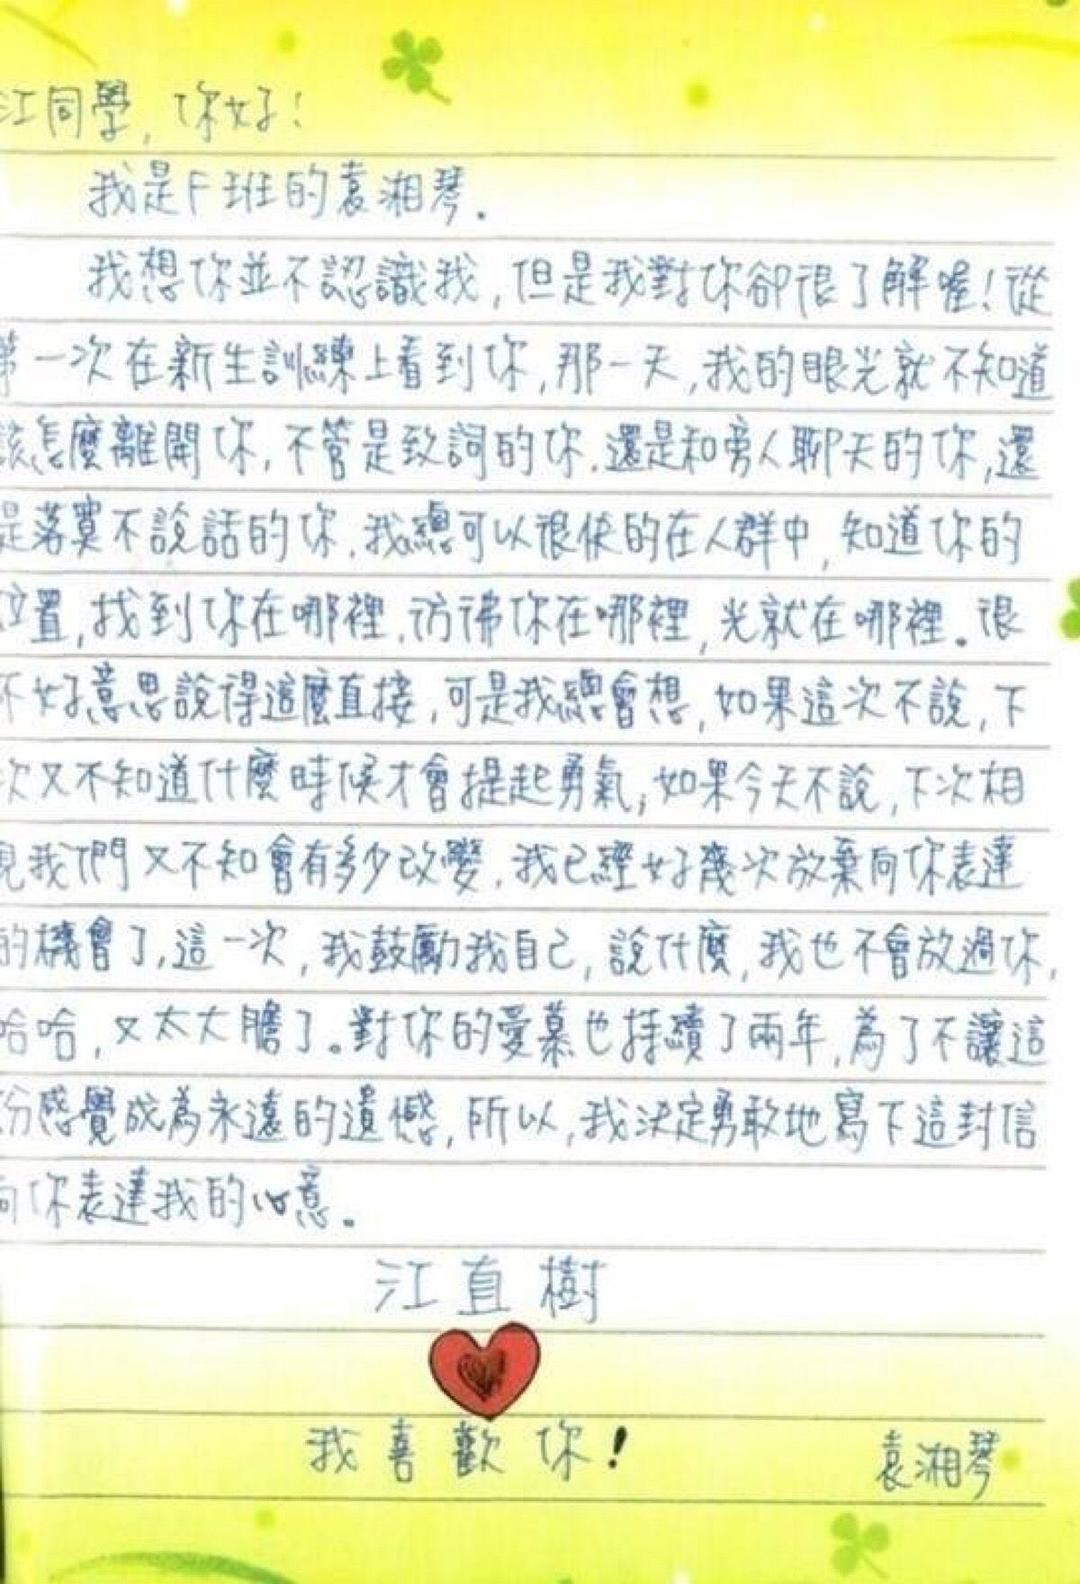 江同學, 你好!
我是F班的袁湘琴.
我想你並不認識我, 但是我對你卻很了解喔! 從
第一次在新生訓練上看到你, 那一天, 我的眼光就不知道
該怎麼離開你, 不管是致詞的你. 還是和旁人聊天的你, 還
是落寞不說話的你. 我總可以很快的在人群中, 知道你的
位置, 找到你在哪裡. 彷彿你在哪裡, 光就在哪裡。很
不好意思說得這麼直接, 可是我總會想, 如果這次不說, 下
次又不知道什麼時候才會提起勇氣, 如果今天不說, 下次相
見我們又不知會有多少改變. 我已經好幾次放棄向你表達
的機會了, 這一次, 我鼓勵我自己, 說什麼, 我也不會放過你,
哈哈, 又太大膽了。對你的愛慕也持續了兩年, 為了不讓這
份感覺成為永遠的遺憾, 所以, 我決定勇敢地寫下這封信
向你表達我的心意。
江直樹
我喜歡你!
袁湘琴